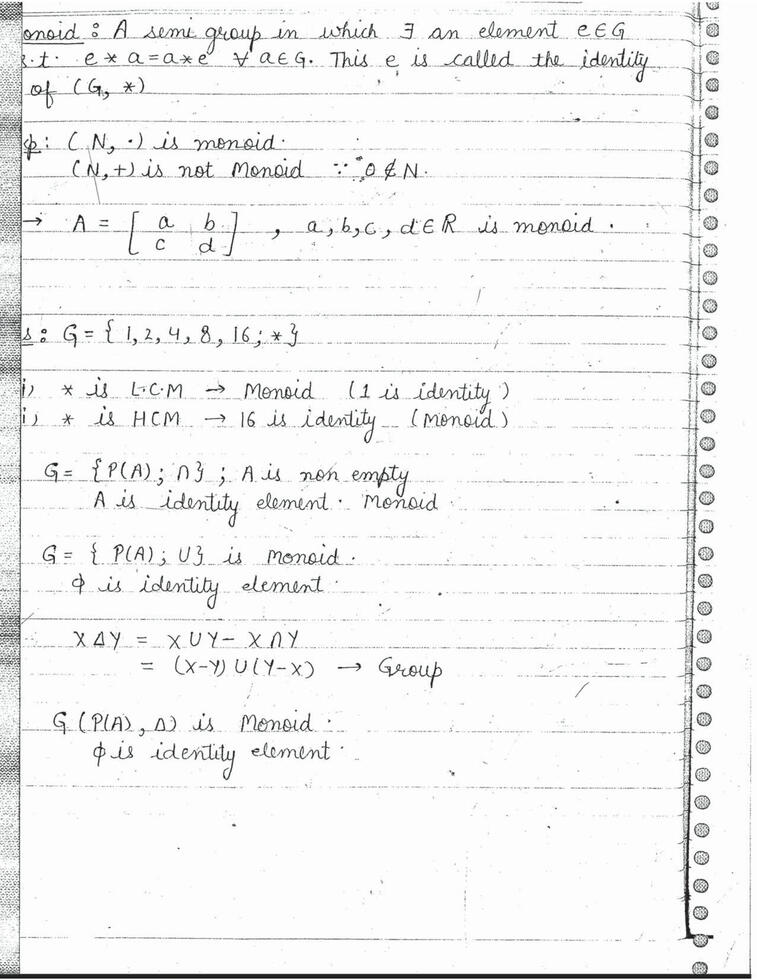 onoid : A semi group in which ∃ an element e∈G
s.t. e * a = a * e ∀ a∈G. This e is called the identity
of (G, *)
: (N, ·) is monoid.
(N, +) is not Monoid ∵ 0 ∉ N.
→ A = [ a b
c d ] , a, b, c, d ∈ R is monoid.
s : G = { 1, 2, 4, 8, 16 ; * }
i) * is L.C.M → Monoid (1 is identity)
i) * is HCM → 16 is identity (Monoid)
G = {P(A) ; ∩} ; A is non empty
A is identity element. Monoid
G = { P(A) ; U} is Monoid.
ϕ is identity element.
X Δ Y = X U Y - X ∩ Y
= (X-Y) U (Y-X) → Group
G (P(A), Δ) is Monoid.
ϕ is identity element.